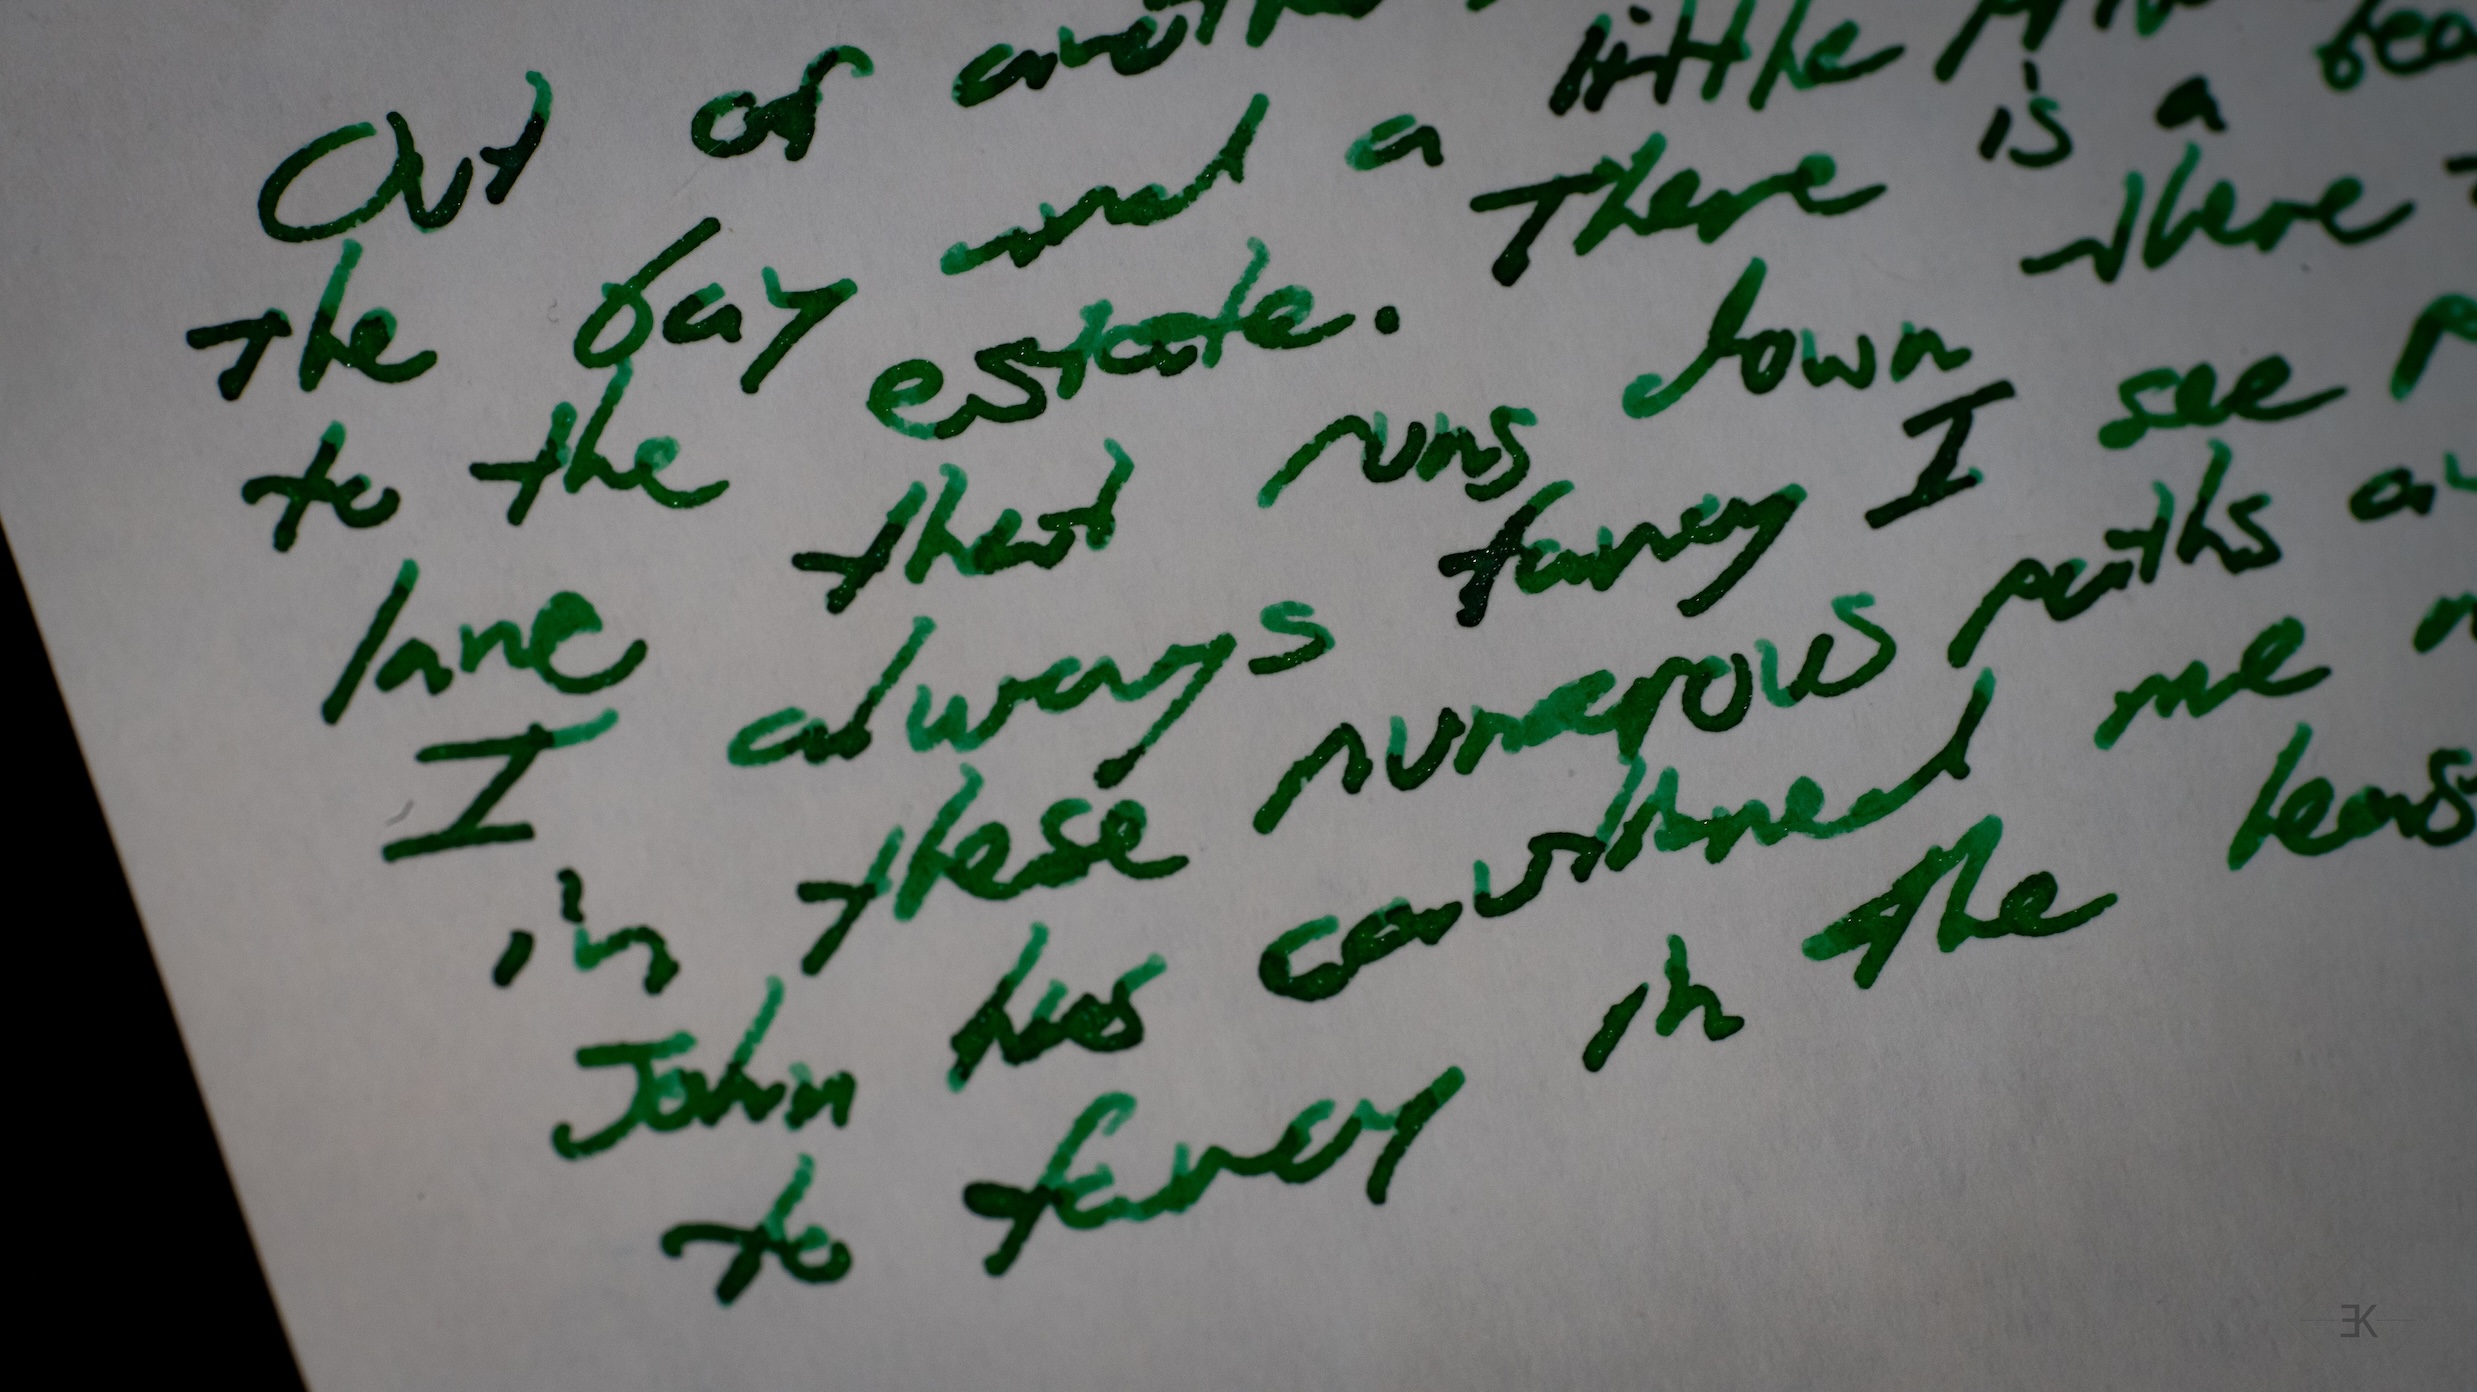 Out of anothe
the bay and a little priv
to the estate. There is a bea
lane that runs down there
I always fancy I see p
in these numerous paths a
John has cautioned me n
to fancy in the leas
EK